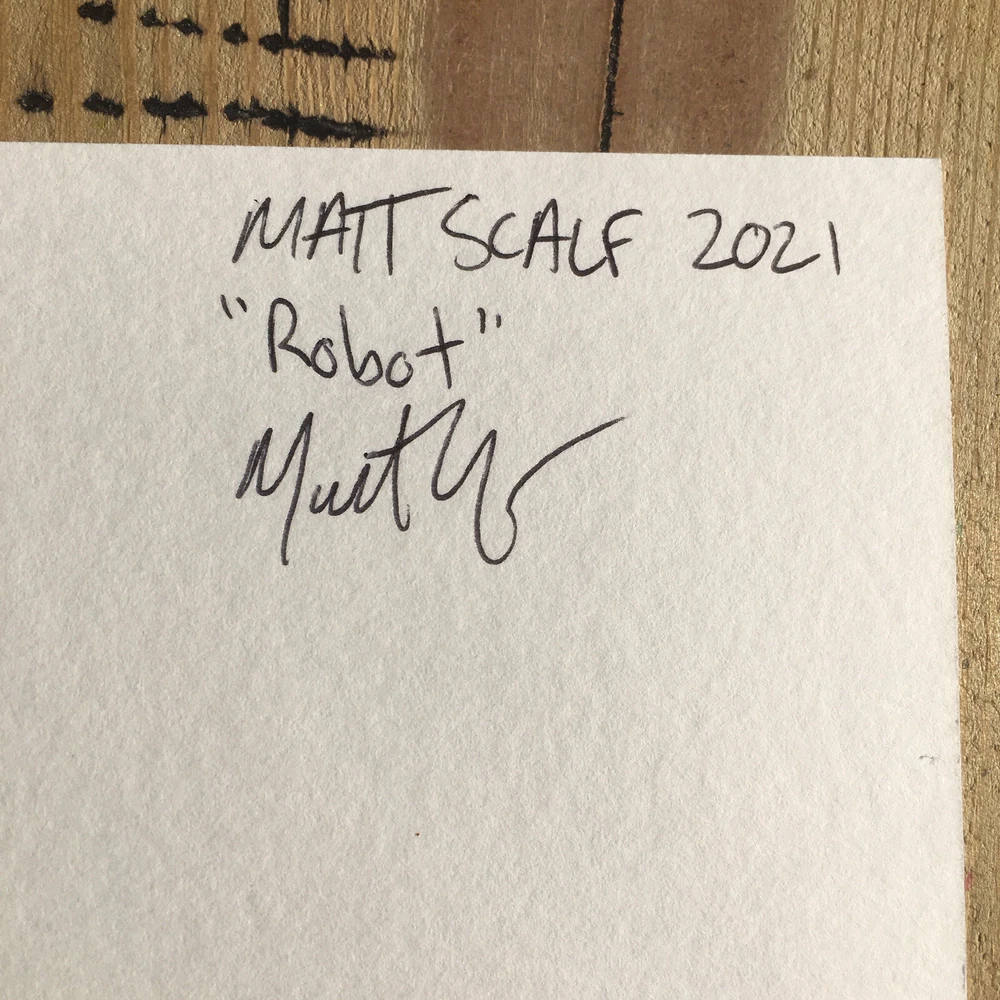 MATT SCALF 2021
"Robot"
Matt